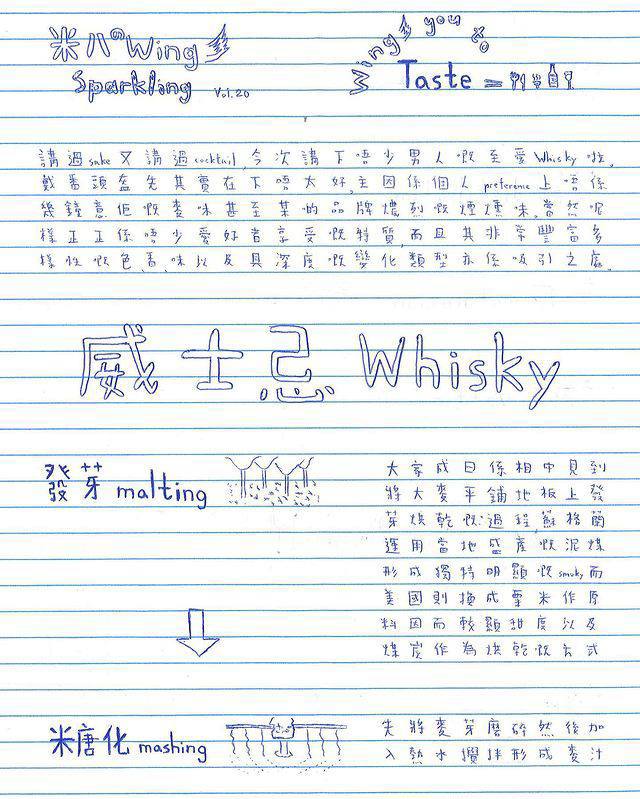 米八のWing
Sparkling Vol.20
Wing you &
Taste
講過sake又講過cocktail,今次講下唔少男人嘅至愛Whisky啦。
戴番頭盔先其實在下唔太好,主因係個人preference上唔係
幾鐘意佢嘅麥味甚至某的品牌濃烈嘅煙燻味,當然呢
樣正正係唔少愛好者享受嘅特質,而且其非常豐富多
樣性嘅色、香、味以及具深度嘅變化類型亦係吸引之處。
威士忌 Whisky
發芽 malting
大家成日係相中見到
將大麥平鋪地板上發
芽烘乾嘅過程,蘇格蘭
運用當地盛產嘅泥煤
形成獨特明顯嘅smoky而
美國則換成粟米作原
料因而較顯甜度以及
煤炭作為烘乾嘅方式
糖化 mashing
先將麥芽磨碎然後加
入熱水攪拌形成麥汁